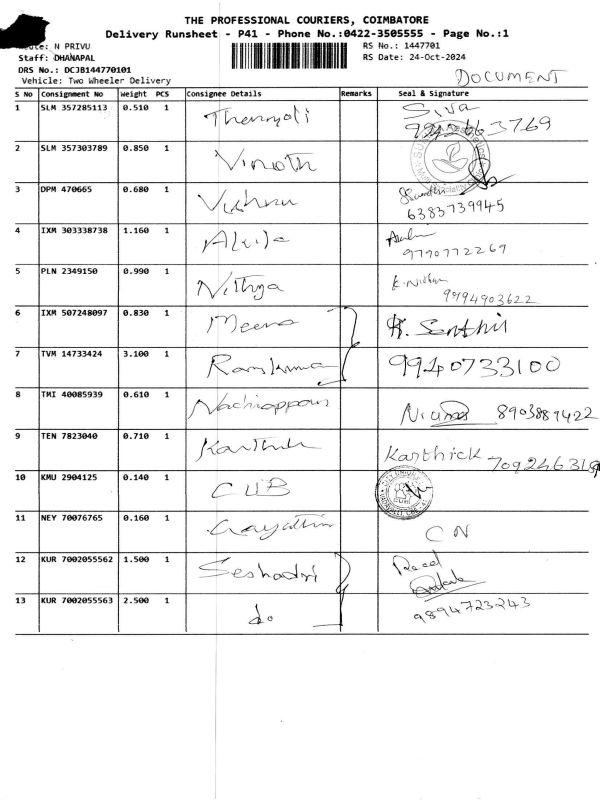 THE PROFESSIONAL COURIERS, COIMBATORE
Delivery Runsheet - P41 - Phone No.:0422-3505555 - Page No.:1
N PRIVU RS No.: 1447701
Staff: DHANAPAL RS Date: 24-Oct-2024
DRS No.: DCJB144770101
Vehicle: Two Wheeler Delivery DOCUMENT
S No Consignment No Weight PCS Consignee Details Remarks Seal & Signature
1 SLM 357285113 0.510 1 Siva
2 SLM 357303789 0.850 1 Vinoth
3 DPM 470665 0.680 1 Vishnu
6383739945
4 IXM 303338738 1.160 1
9790772269
5 PLN 2349150 0.990 1 Nithya
9994903622
6 IXM 507248097 0.830 1 Meena K. Senthil
7 TVM 14733424 3.100 1 Ramkumar 9940733100
8 TMI 40085939 0.610 1 Nachiappan 8903889422
9 TEN 7823040 0.710 1 Karthick Karthick
10 KMU 2904125 0.140 1 CUB
11 NEY 70076765 0.160 1 Gayathri CN
12 KUR 7002055562 1.500 1 Seshadri Recd
13 KUR 7002055563 2.500 1 do 9894723243